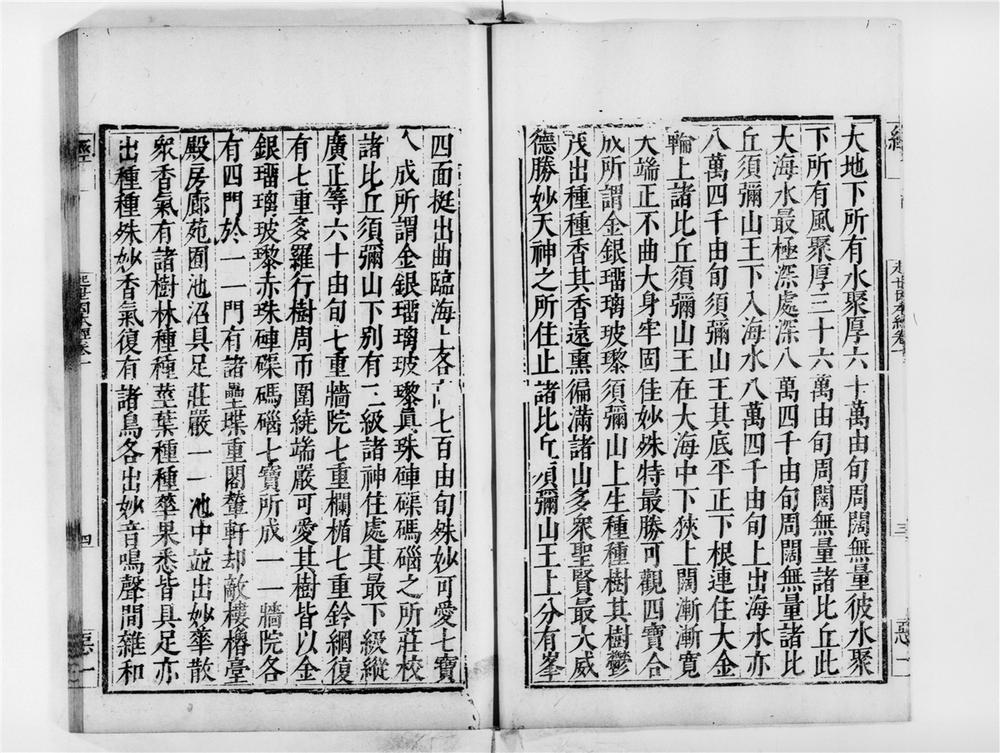 經
起世因本經卷一
三
惡一
大地下所有水聚厚六十萬由旬周闊無量彼水聚
下所有風聚厚三十六萬由旬周闊無量諸比丘此
大海水最極深處深八萬四千由旬周闊無量諸比
丘須彌山王下入海水八萬四千由旬上出海水亦
八萬四千由旬須彌山王其底平正下根連住大金
輪上諸比丘須彌山王在大海中下狹上闊漸漸寬
大端正不曲大身牢固佳妙殊特最勝可觀四寶合
成所謂金銀瑠璃玻瓈須彌山上生種種樹其樹鬱
茂出種種香其香遠熏徧滿諸山多衆聖賢最大威
德勝妙天神之所住止諸比丘須彌山王上分有峯
四面挺出曲臨海上各高七百由旬殊妙可愛七寶
合成所謂金銀瑠璃玻瓈真珠硨磲碼碯之所莊校
諸比丘須彌山下別有三級諸神住處其最下級縱
廣正等六十由旬七重牆院七重欄楯七重鈴網復
有七重多羅行樹周帀圍繞端嚴可愛其樹皆以金
銀瑠璃玻瓈赤珠硨磲碼碯七寶所成一一牆院各
有四門於一一門有諸壘堞重閣輦軒却敵樓櫓臺
殿房廊苑囿池沼具足莊嚴一一池中竝出妙華散
衆香氣有諸樹林種種莖葉種種華果悉皆具足亦
出種種殊妙香氣復有諸鳥各出妙音鳴聲間雜和
經
起世因本經卷一
四
惡一